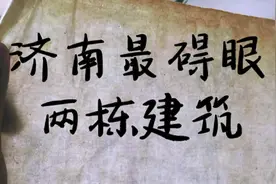 济南最碍眼
两栋建筑